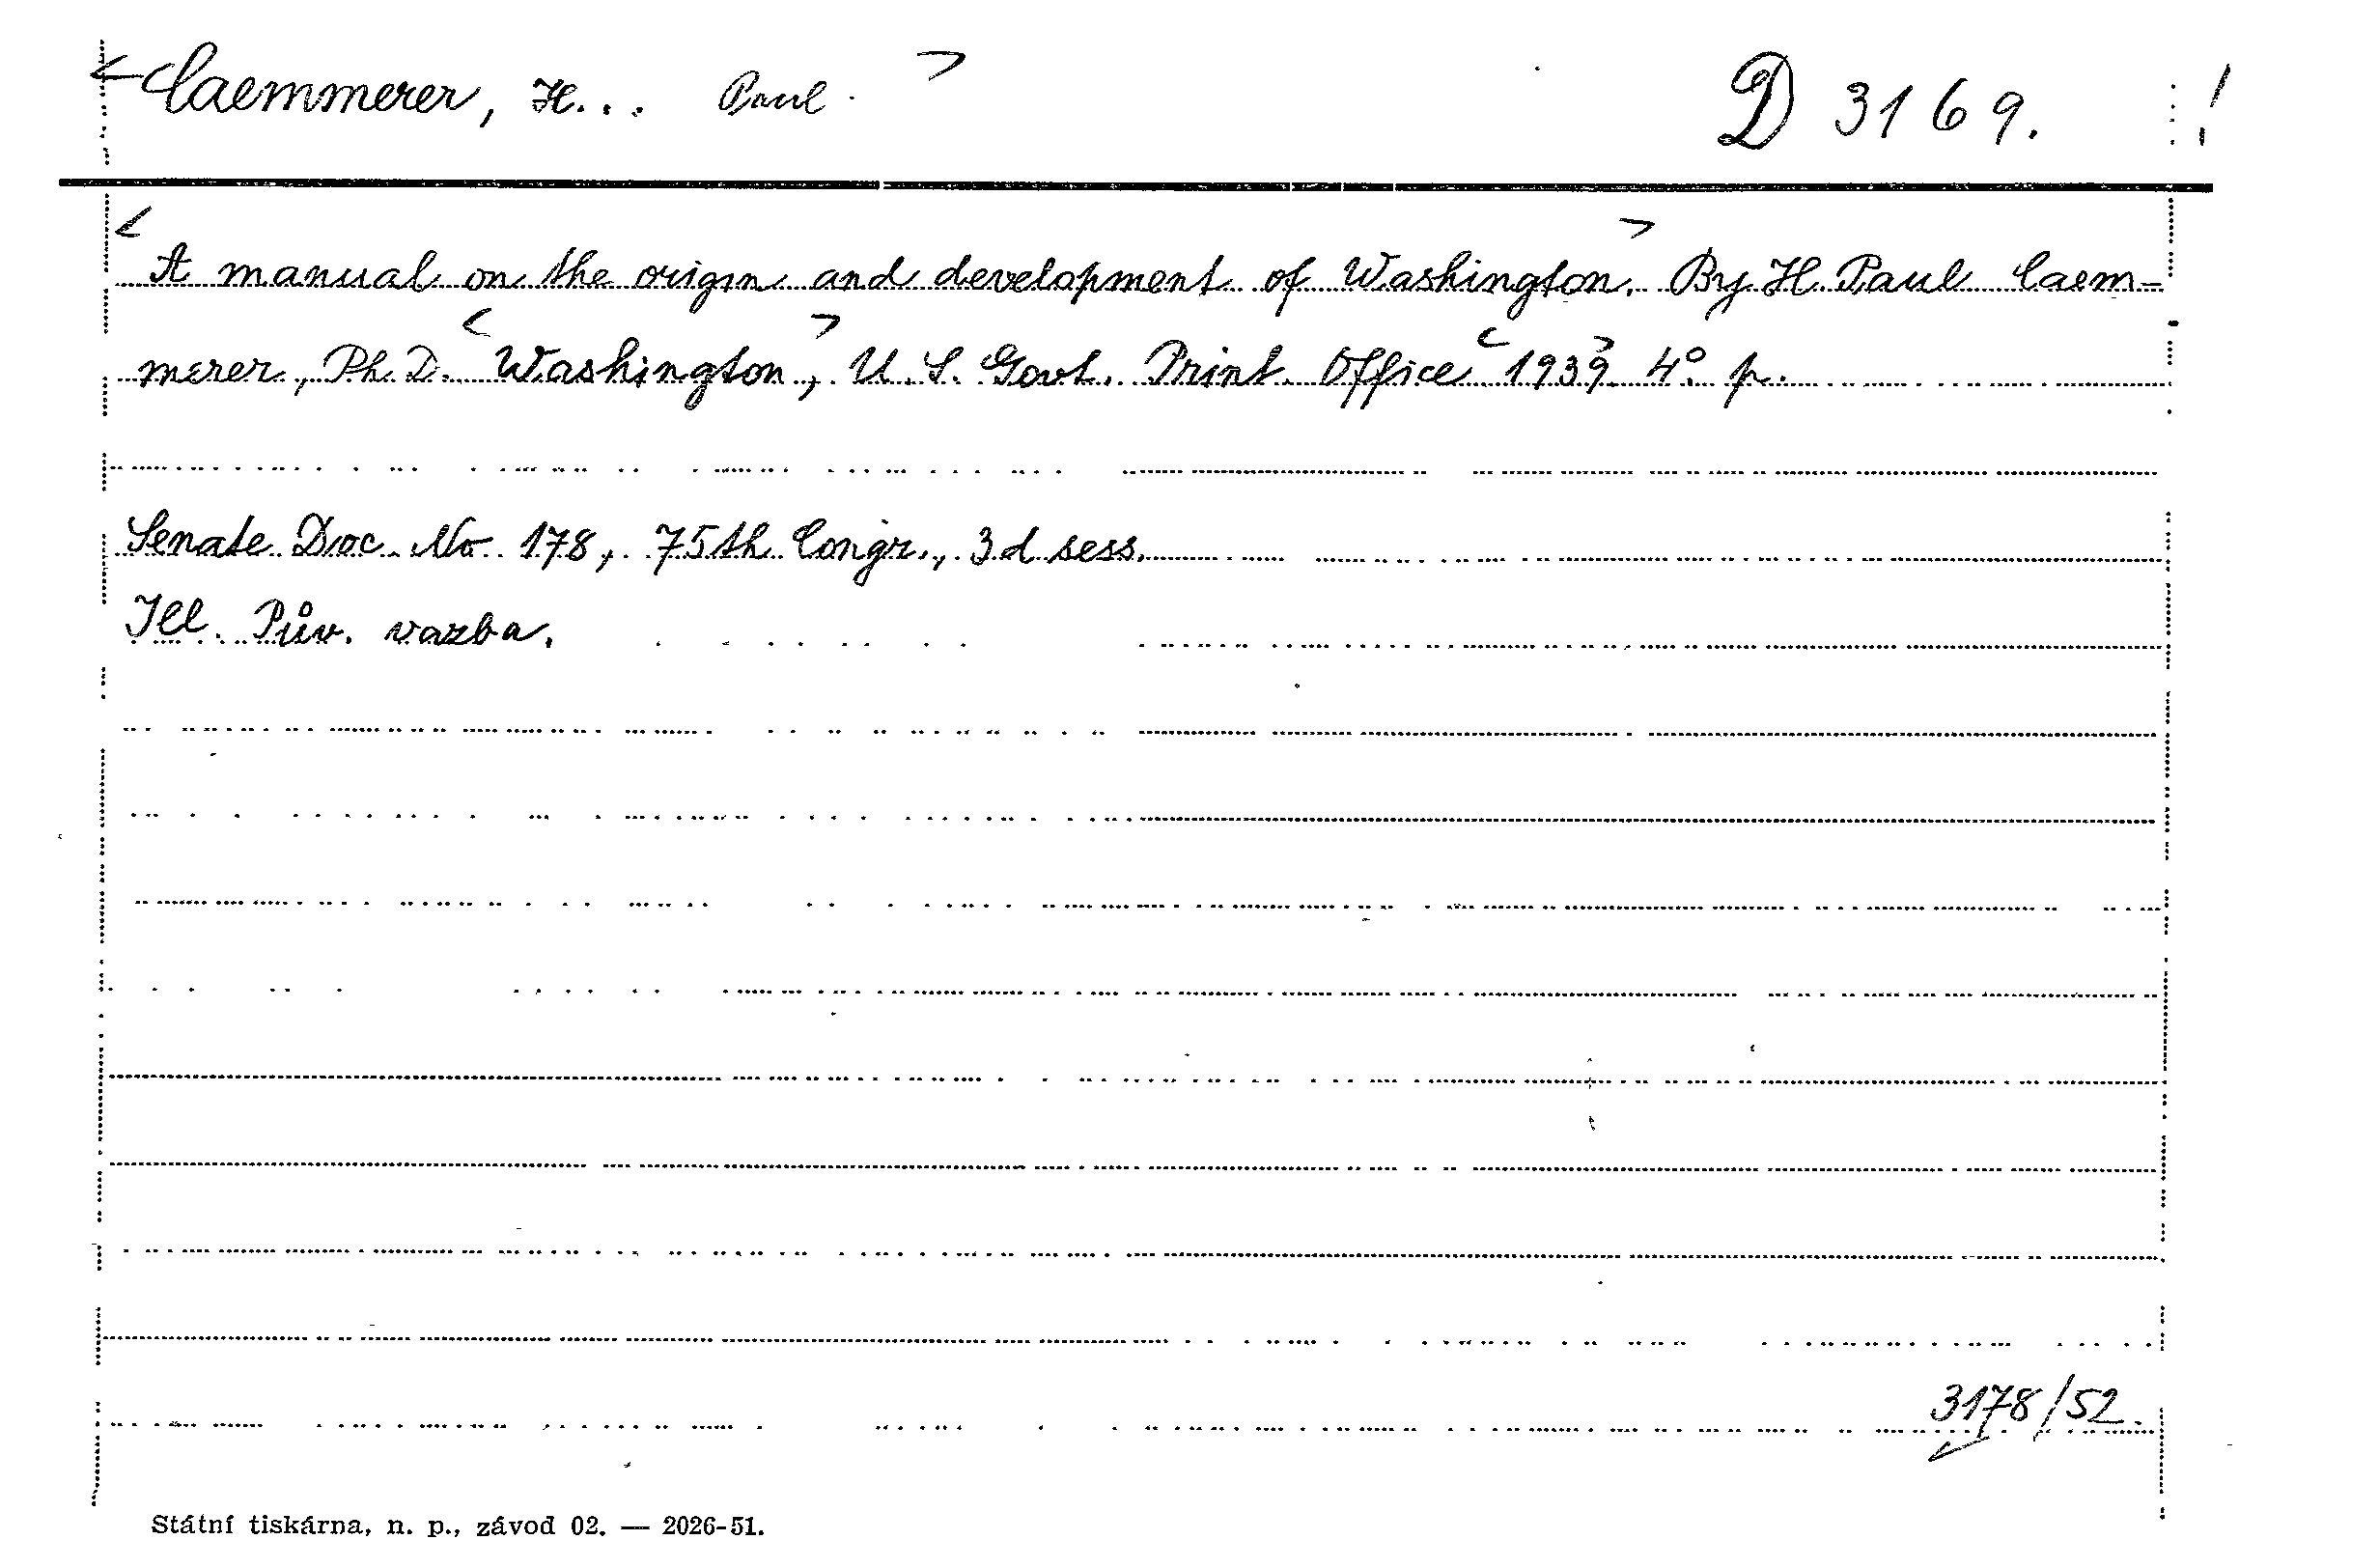 <Caemmerer, H... Paul> D 3169. !
<A manual on the origin and development of Washington.> By H. Paul Caem-
merer, Ph. D. <Washington,> U. S. Govt. Print. Office <1939>. 4°. p.
Senate Doc. No 178, 75th Congr., 3d sess.
Ill. Pův. vazba.
3178/52.
Státní tiskárna, n. p., závod 02. — 2026-51.